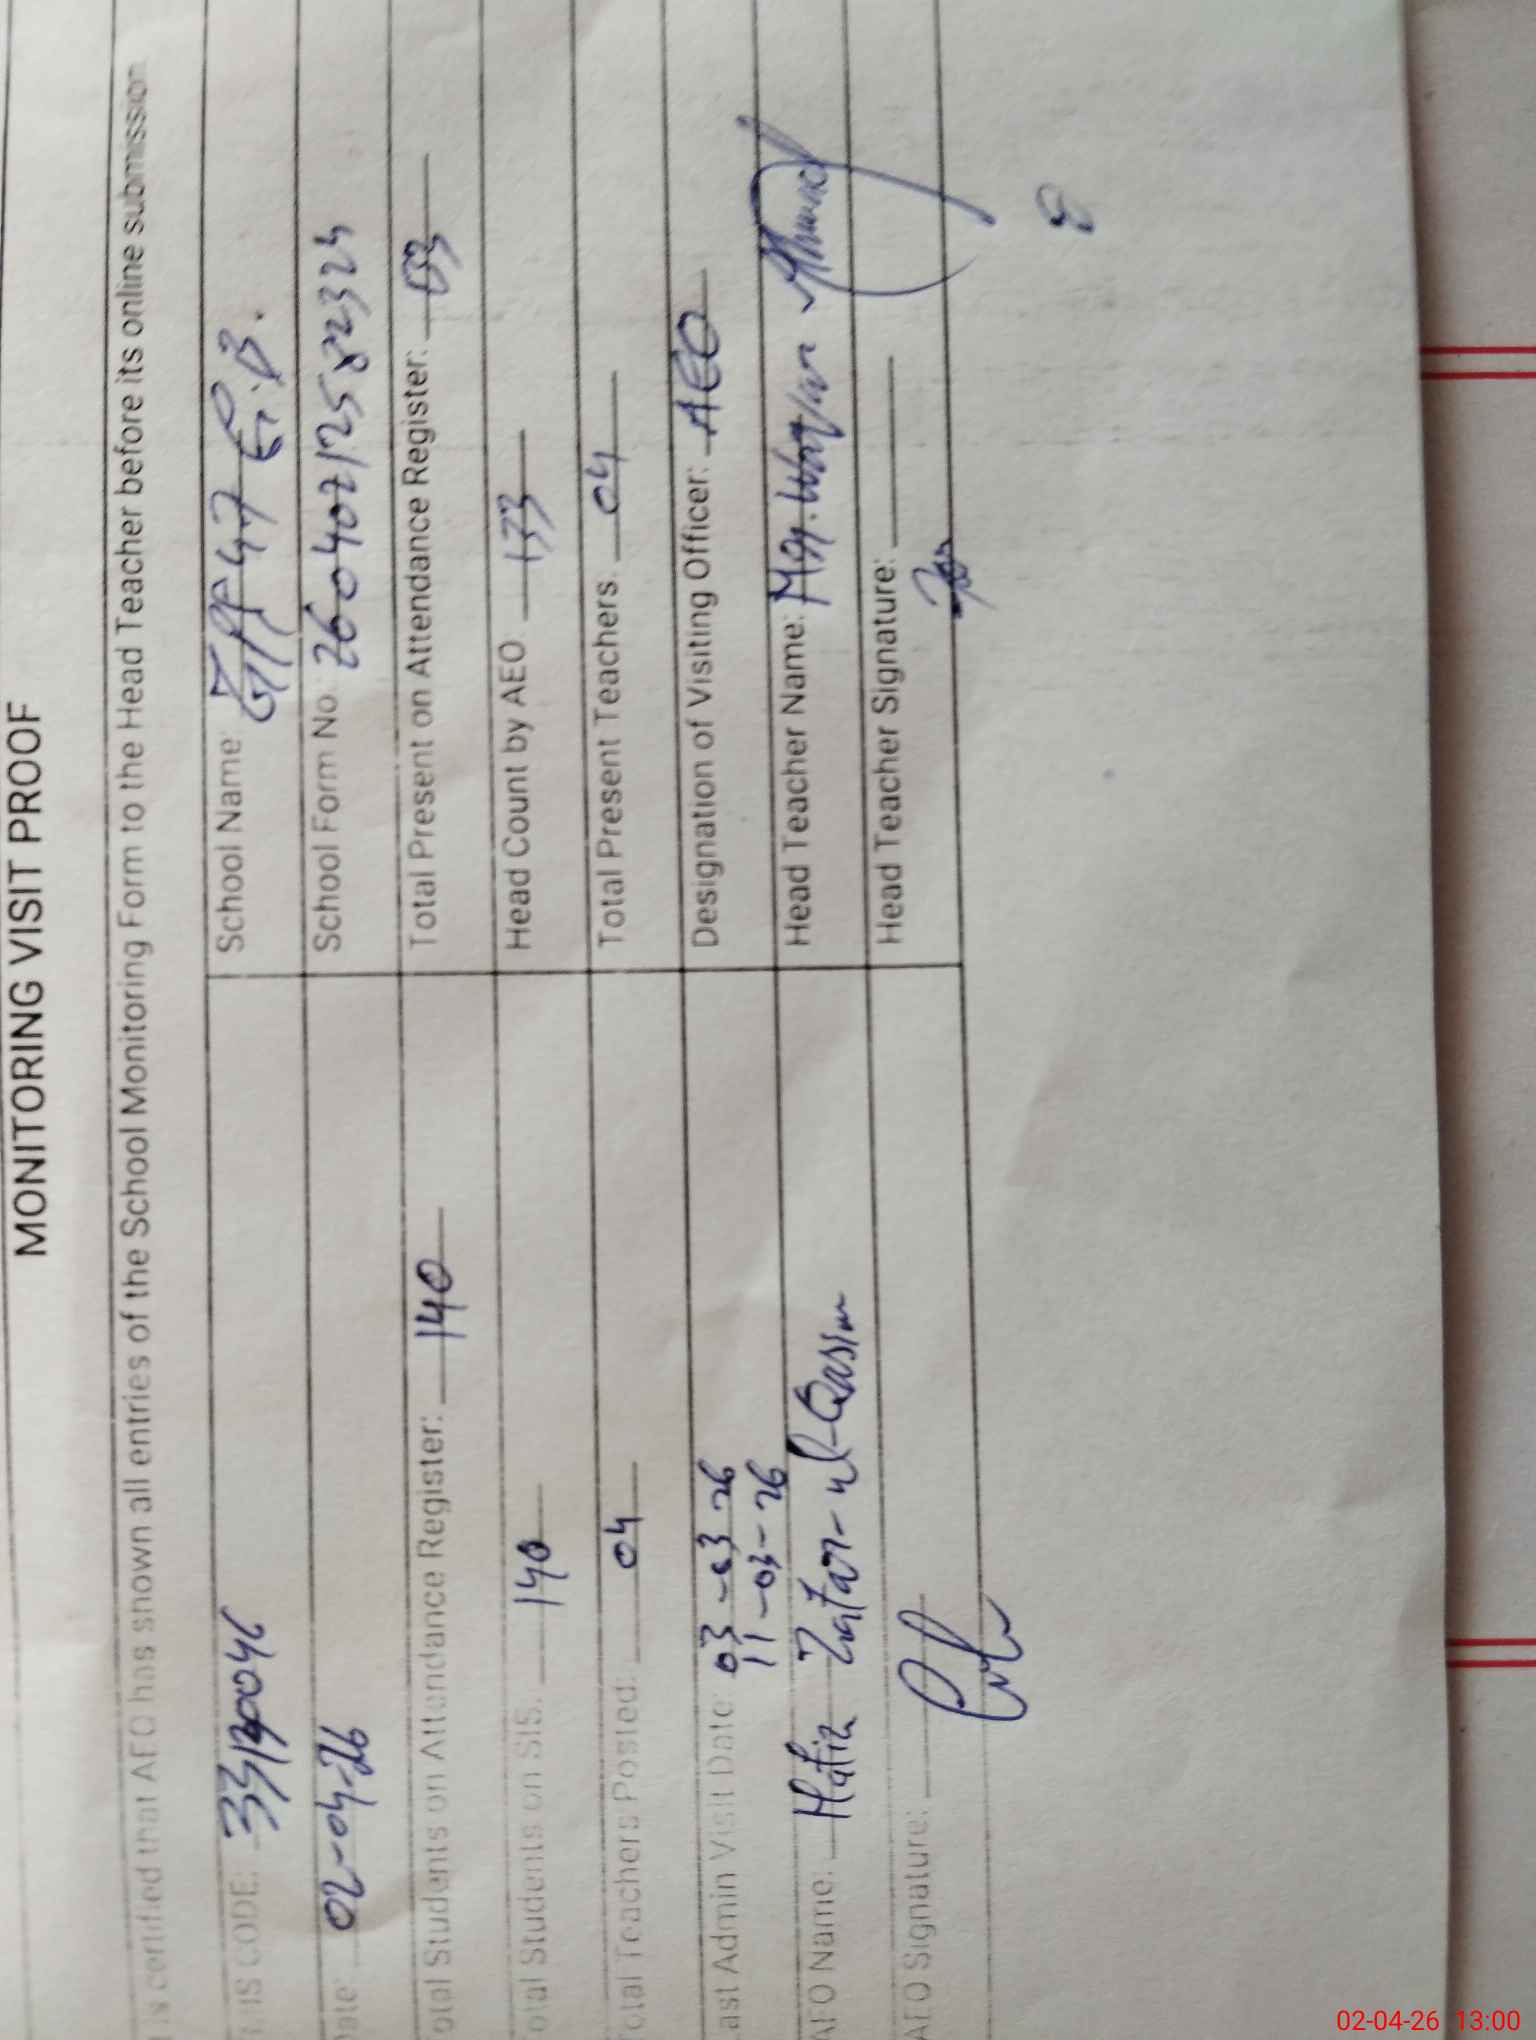 MONITORING VISIT PROOF
is certified that AEO has shown all entries of the School Monitoring Form to the Head Teacher before its online submission
CODE:
School Name:
Date: 02-04-26
School Form No. 26040212582324
Total Students on Attendance Register: 140
Total Present on Attendance Register:
Total Students on SIS: 140
Head Count by AEO 133
Total Teachers Posted: 04
Total Present Teachers: 04
Last Admin Visit Date: 03-03-26
11-03-26
Designation of Visiting Officer: AEO
AEO Name: Hafiz Zafar-ul-Qasim
Head Teacher Name:
AEO Signature:
Head Teacher Signature:
02-04-26 13:00